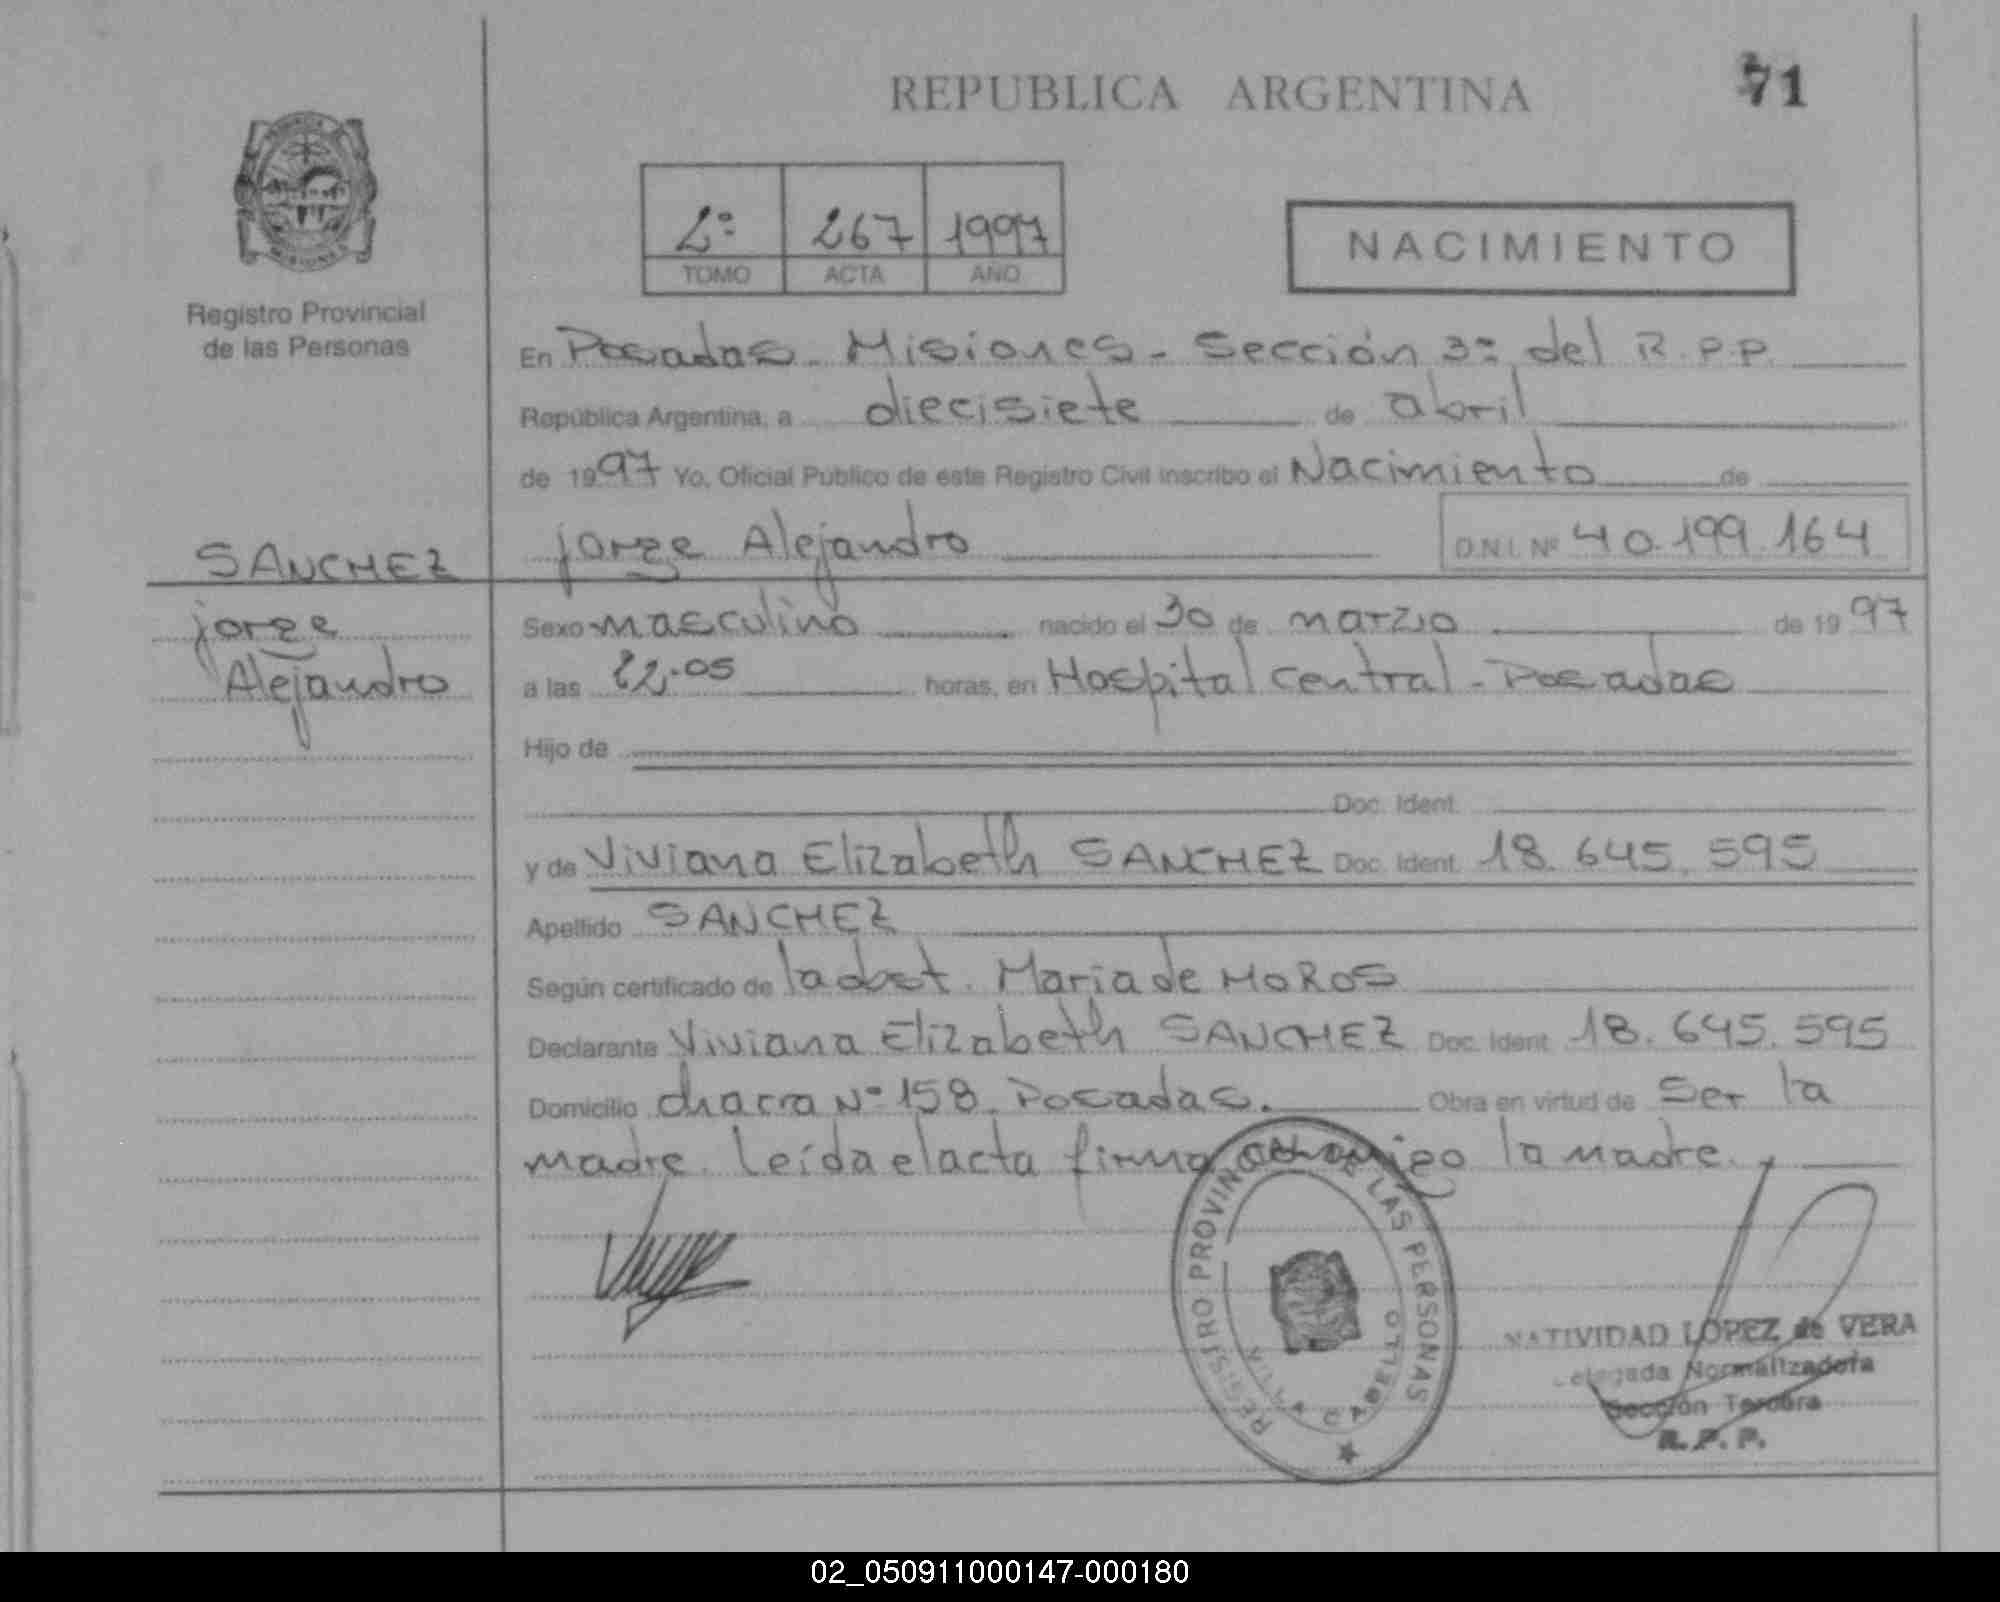 REPUBLICA ARGENTINA
71
2º 267 1997
TOMO ACTA AÑO
NACIMIENTO
Registro Provincial
de las Personas
En Posadas - Misiones - Sección 3º del R.P.P.
República Argentina, a diecisiete de abril
de 1997 Yo, Oficial Público de este Registro Civil inscribo el Nacimiento de
SANCHEZ
jorge Alejandro D.N.I. Nº 40.199.164
jorge
Alejandro
Sexo masculino nacido el 30 de marzo de 1997
a las 22.05 horas, en Hospital central - Posadas
Hijo de
Doc. Ident.
y de Viviana Elizabeth SANCHEZ Doc. Ident. 18.645.595
Apellido SANCHEZ
Según certificado de la obst. Maria de MOROS
Declarante Viviana Elizabeth SANCHEZ Doc. Ident. 18.645.595
Domicilio chacra Nº 158. Posadas. Obra en virtud de ser la
madre. leída el acta firma conmigo la madre.
REGISTRO PROVINCIAL DE LAS PERSONAS
VILLA CABELLO
NATIVIDAD LOPEZ de VERA
Delegada Normalizadora
Sección Tercera
R.P.P.
02_050911000147-000180